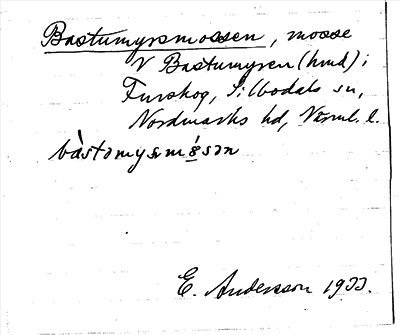 Bastumyrsmossen, mosse
V Bastumyren (hmd) i
Furskog, Silbodals sn,
Nordmarks hd, Värml. l.
bàstomyșmǿsən
E. Andersson 1933.